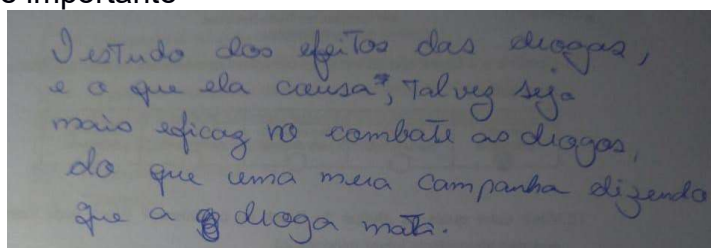 e importante
O estudo dos efeitos das drogas,
e o que ela causa, talvez seja
mais eficaz no combate as drogas,
do que uma mera campanha dizendo
que a droga mata.